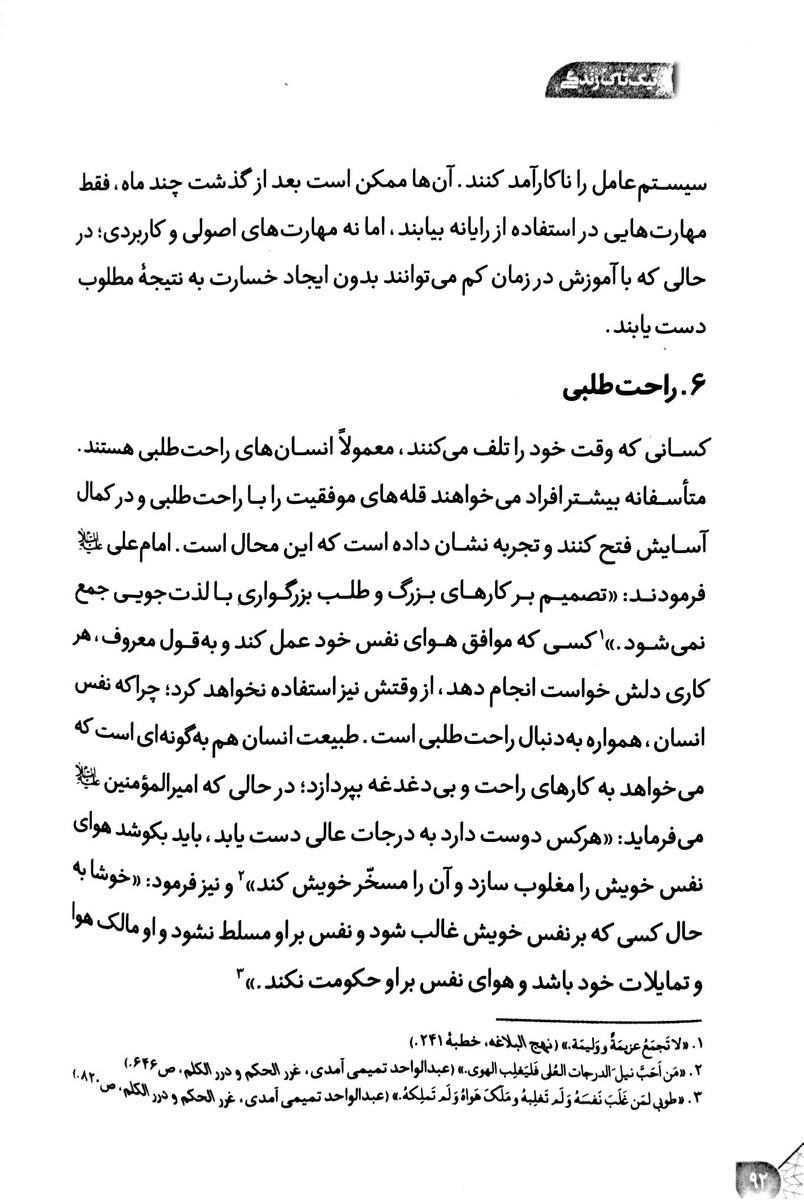 تیک تاک زندگی
سیستم‌عامل را ناکارآمد کنند. آن‌ها ممکن است بعد از گذشت چند ماه، فقط
مهارت‌هایی در استفاده از رایانه بیابند، اما نه مهارت‌های اصولی و کاربردی؛ در
حالی که با آموزش در زمان کم می‌توانند بدون ایجاد خسارت به نتیجهٔ مطلوب
دست یابند.
۶. راحت‌طلبی
کسانی که وقت خود را تلف می‌کنند، معمولاً انسان‌های راحت‌طلبی هستند.
متأسفانه بیشتر افراد می‌خواهند قله‌های موفقیت را با راحت‌طلبی و در کمال
آسایش فتح کنند و تجربه نشان داده است که این محال است. امام علی علیه‌السلام
فرمودند: «تصمیم بر کارهای بزرگ و طلب بزرگواری با لذت‌جویی جمع
نمی‌شود.»۱ کسی که موافق هوای نفس خود عمل کند و به‌قول معروف، هر
کاری دلش خواست انجام دهد، از وقتش نیز استفاده نخواهد کرد؛ چراکه نفس
انسان، همواره به‌دنبال راحت‌طلبی است. طبیعت انسان هم به‌گونه‌ای است که
می‌خواهد به کارهای راحت و بی‌دغدغه بپردازد؛ در حالی که امیرالمؤمنین علیه‌السلام
می‌فرماید: «هرکس دوست دارد به درجات عالی دست یابد، باید بکوشد هوای
نفس خویش را مغلوب سازد و آن را مسخّر خویش کند»۲ و نیز فرمود: «خوشا به
حال کسی که بر نفس خویش غالب شود و نفس بر او مسلط نشود و او مالک هوا
و تمایلات خود باشد و هوای نفس بر او حکومت نکند.»۳
۱. «لا تَجمَعُ عزیمَةٌ و وَلیمَة.» (نهج البلاغه، خطبهٔ ۲۴۱.)
۲. «مَن اَحَبَّ نیلَ الدرجات العُلی فَلیَغلِب الهوی.» (عبدالواحد تمیمی آمدی، غرر الحکم و درر الکلم، ص۶۴۶.)
۳. «طوبی لمَن غَلَبَ نَفسَهُ وَ لَم تَغلِبهُ و مَلَکَ هَواهُ وَ لَم تَملِکهُ.» (عبدالواحد تمیمی آمدی، غرر الحکم و درر الکلم، ص۸۲۰.)
۹۲